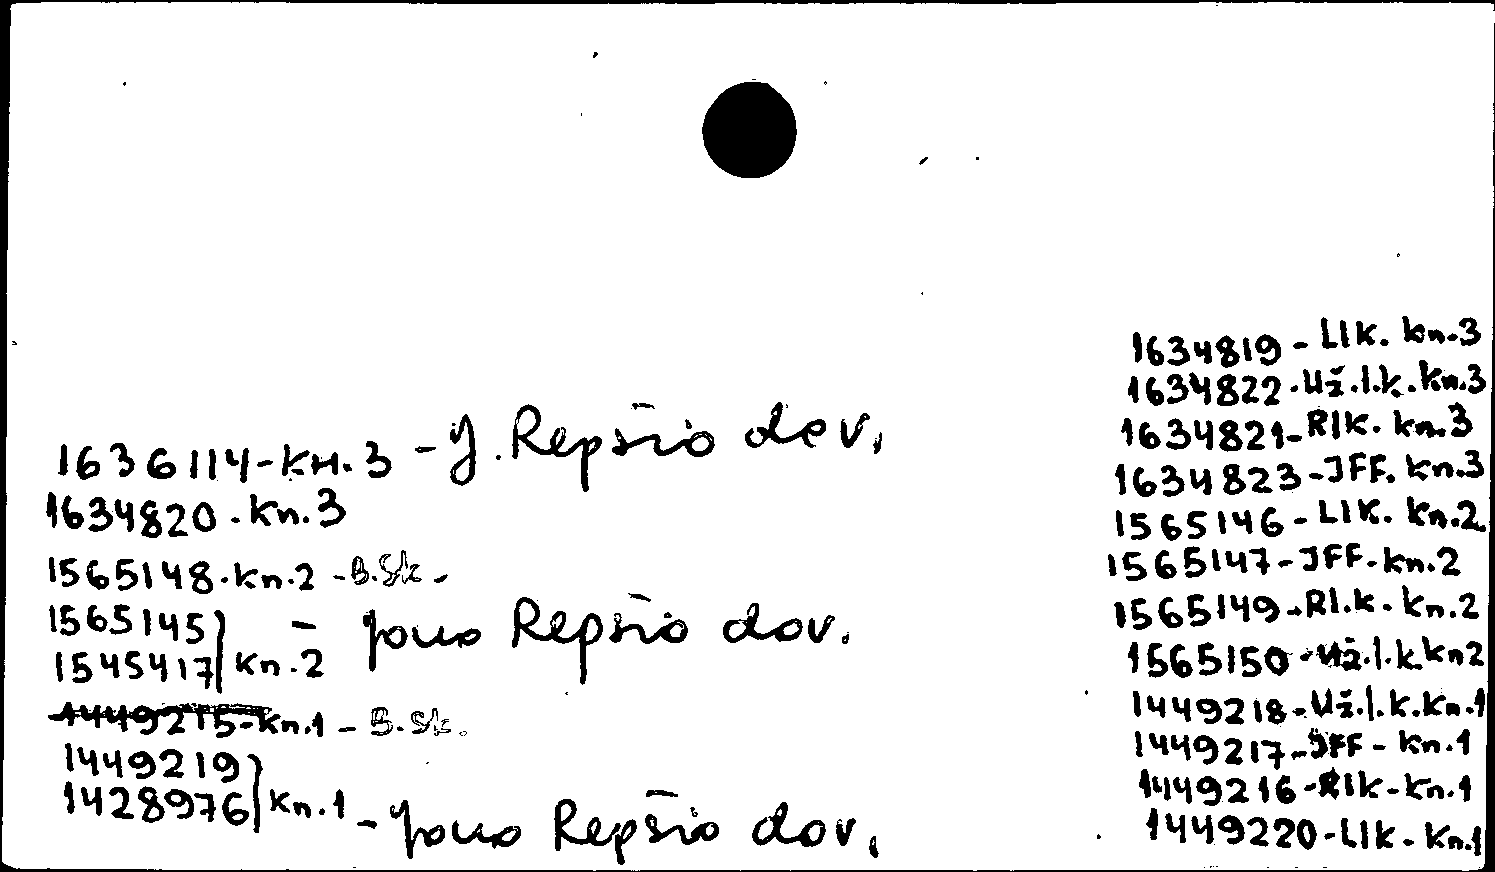 1636114-kn.3 - J. Repšio dov.
1634820 - kn.3
1565148 - kn.2 - B.Sk.
1565145
1545417 kn.2 - Jono Repšio dov.
1449215 - kn.1 - B.Sk.
1449219
1428976 kn.1 - Jono Repšio dov.
1634819 - LIK. kn.3
1634822 - Už.l.k. kn.3
1634821 - RIK. kn.3
1634823 - JFF. kn.3
1565146 - LIK. kn.2
1565147 - JFF - kn.2
1565149 - RI.k - kn.2
1565150 - Už.l.k kn2
1449218 - Už.l.k. kn.1
1449217 - JFF - kn.1
1449216 - RIK - kn.1
1449220 - LIK - kn.1